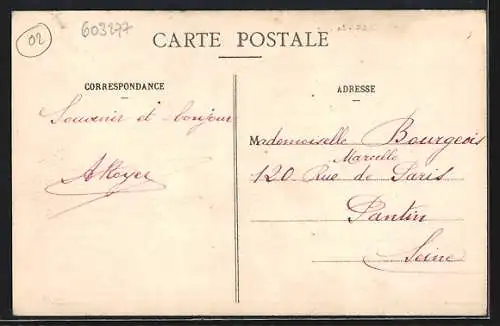 02
603277
CARTE POSTALE
CORRESPONDANCE
Souvenir et bonjour
ARoyer
ADRESSE
Mademoiselle Bourgeois
Marcelle
120 Rue de Paris
Pantin
Seine